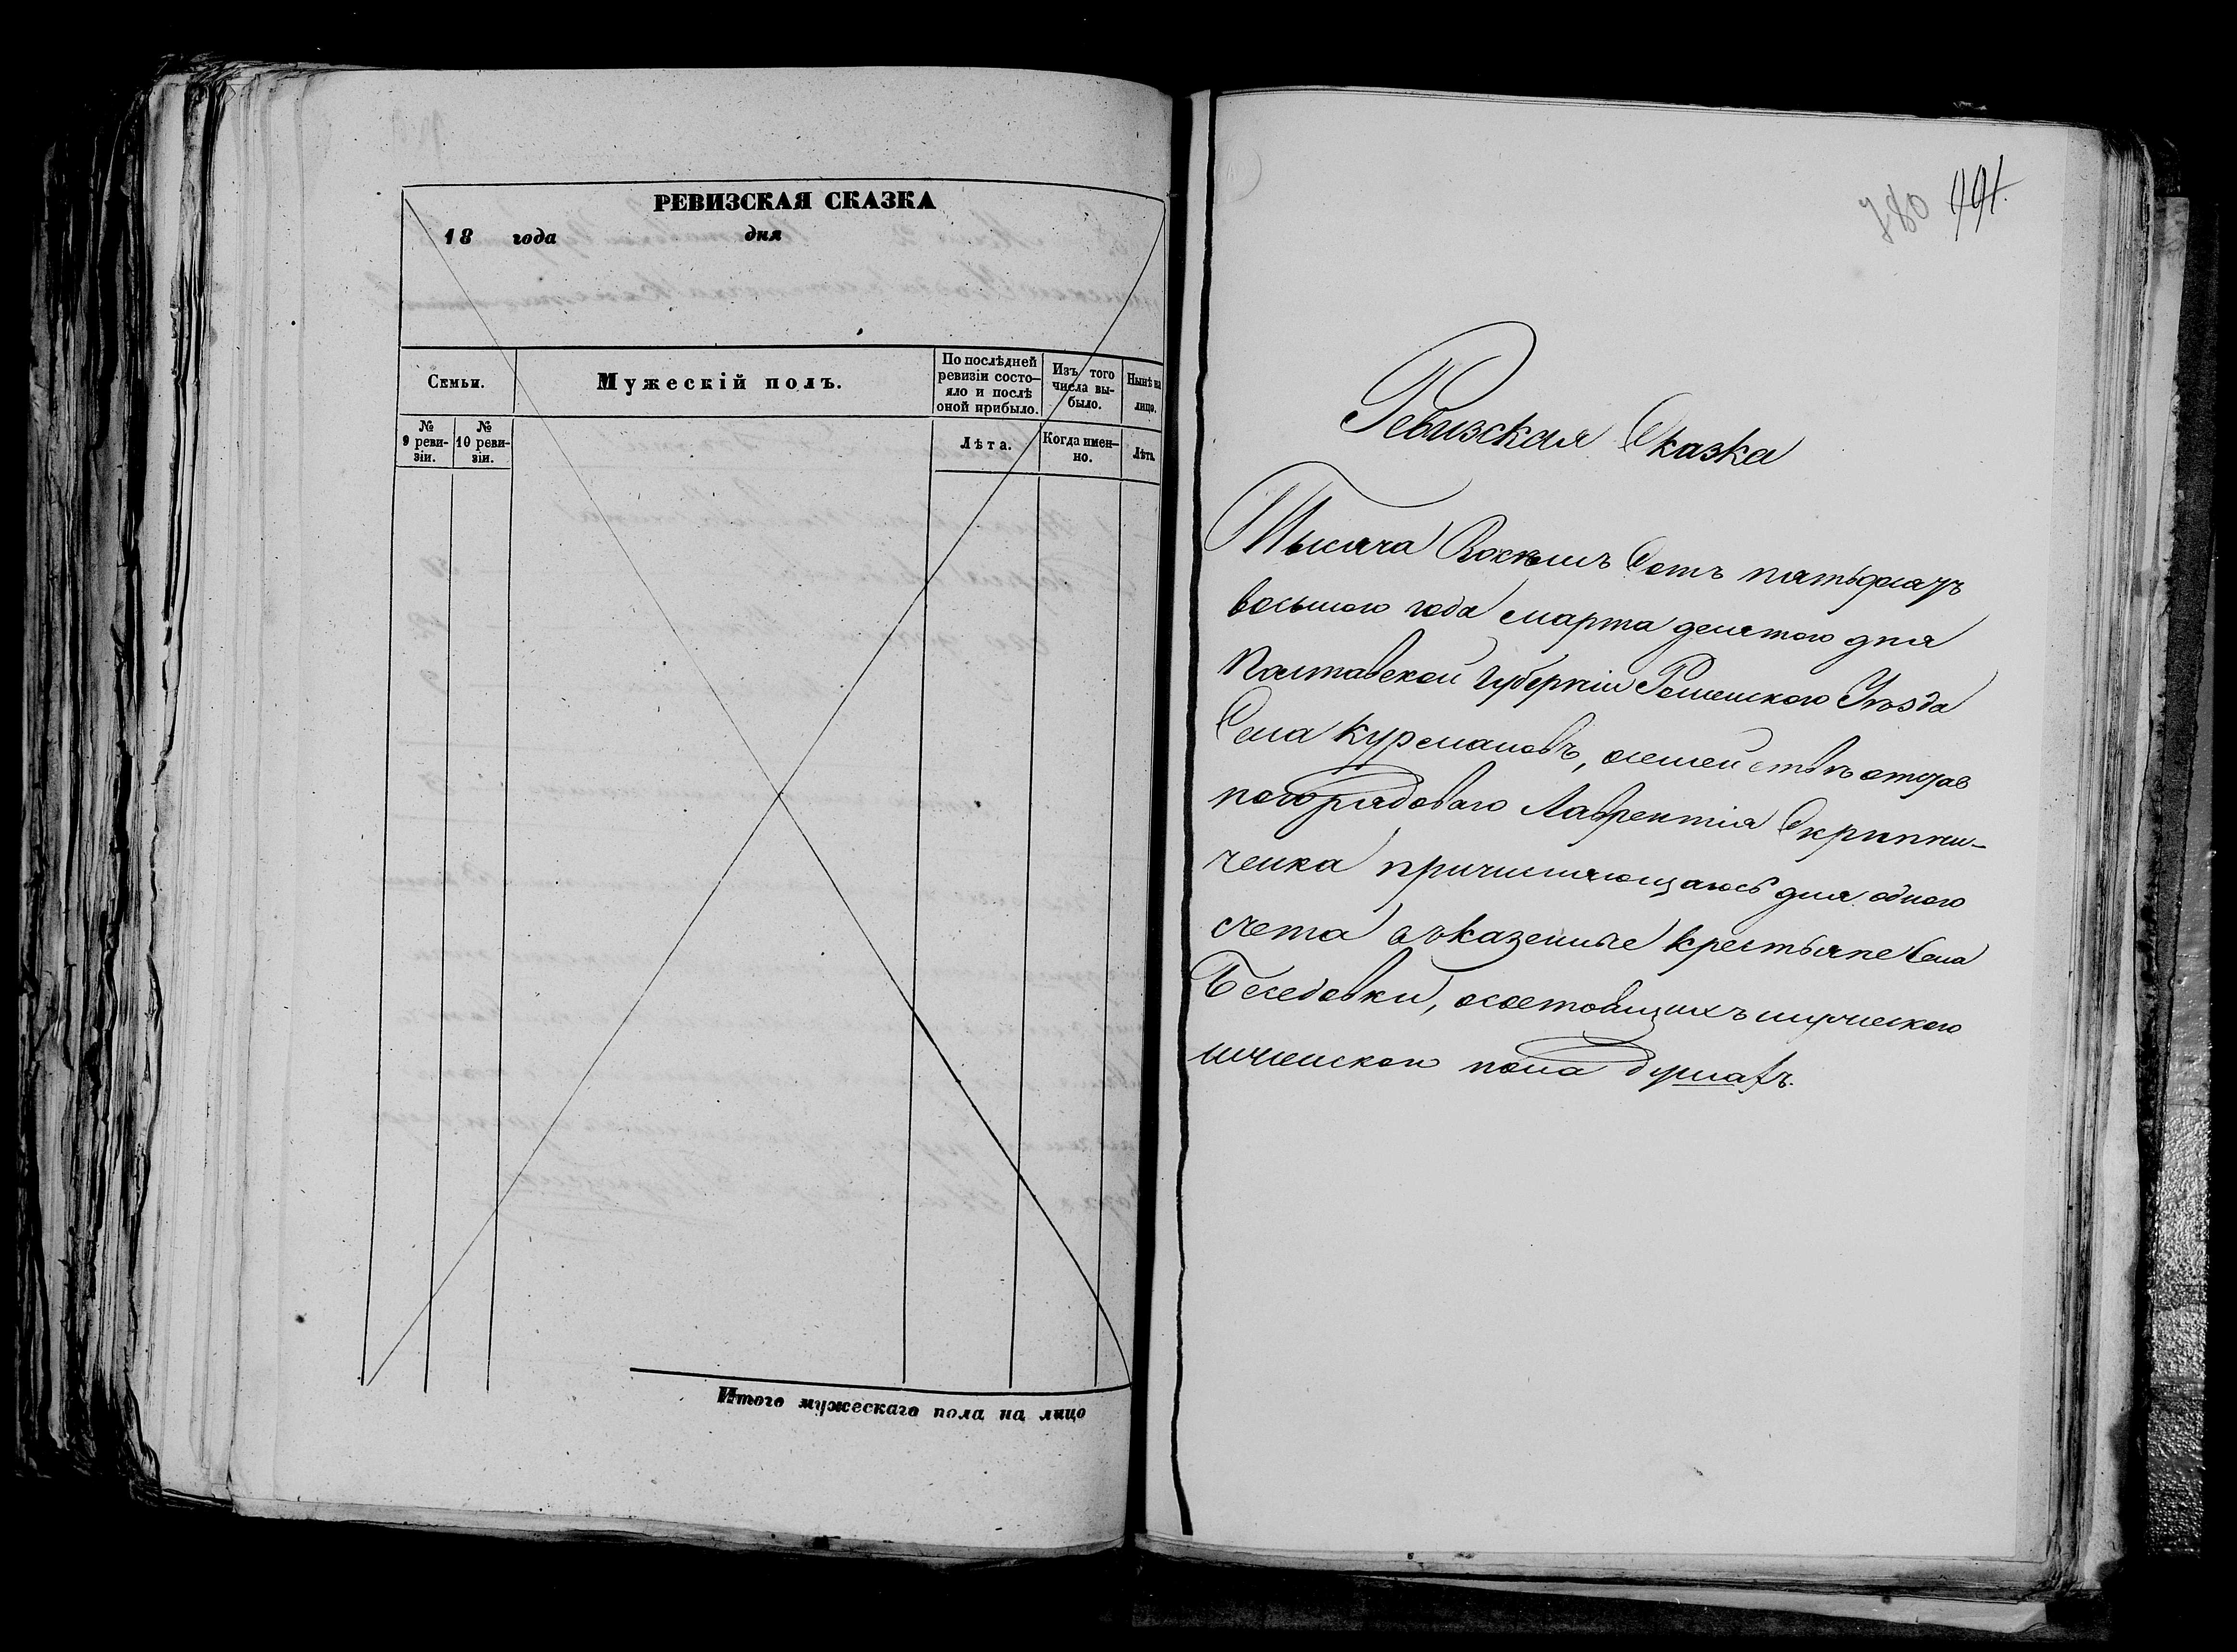 РЕВИЗСКАЯ СКАЗКА
18 года дня
Семьи.
Мужескій полъ.
По послѣдней ревизіи состо-
яло и послѣ оной прибыло.
Изъ того числа вы-
было.
Нынѣ на лицо.
№ 9 реви-
зіи.
№ 10 реви-
зіи.
Лѣта.
Когда имен-
но.
Лѣта.
Итого мужескаго пола на лицо
780 991.
Ревизская Сказка
Тысяча Восемь Сотъ пятьдесятъ
восьмого года марта девятого дня
Полтавской Губерніи Роменского Уѣзда
Села Курмановъ, осемействѣ отстав
ного рядоваго Лаврентія Скрипни-
ченка причисляющаюсь для одного
счета въ казенные крестьяне Села
Беседовки, осостоящихъ мужеского
иженского пола душахъ.